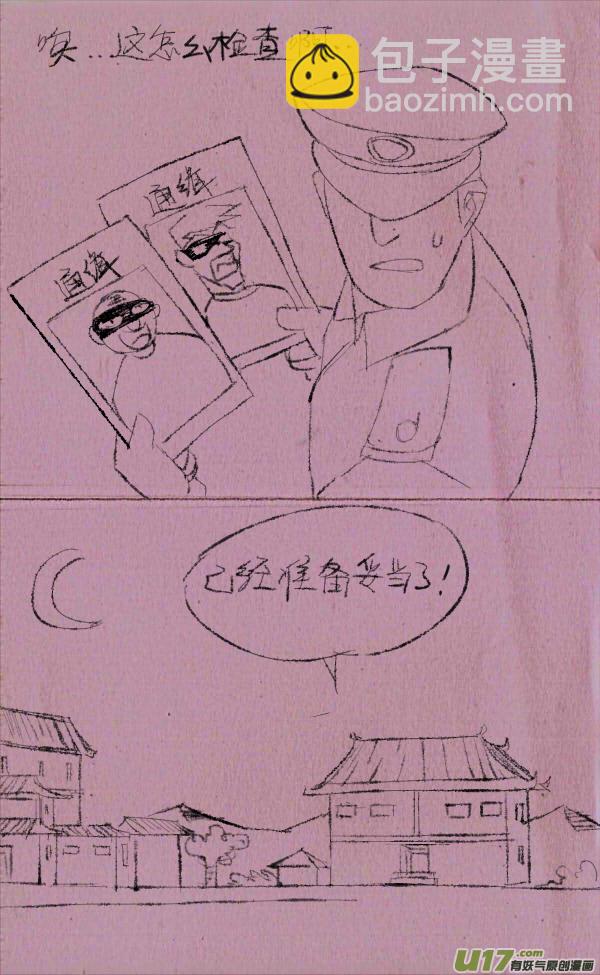 唉...这怎么检查啊...
包子漫畫
baozimh.com
通缉
通缉
已经准备妥当了！
U17.com
有妖气原创漫画